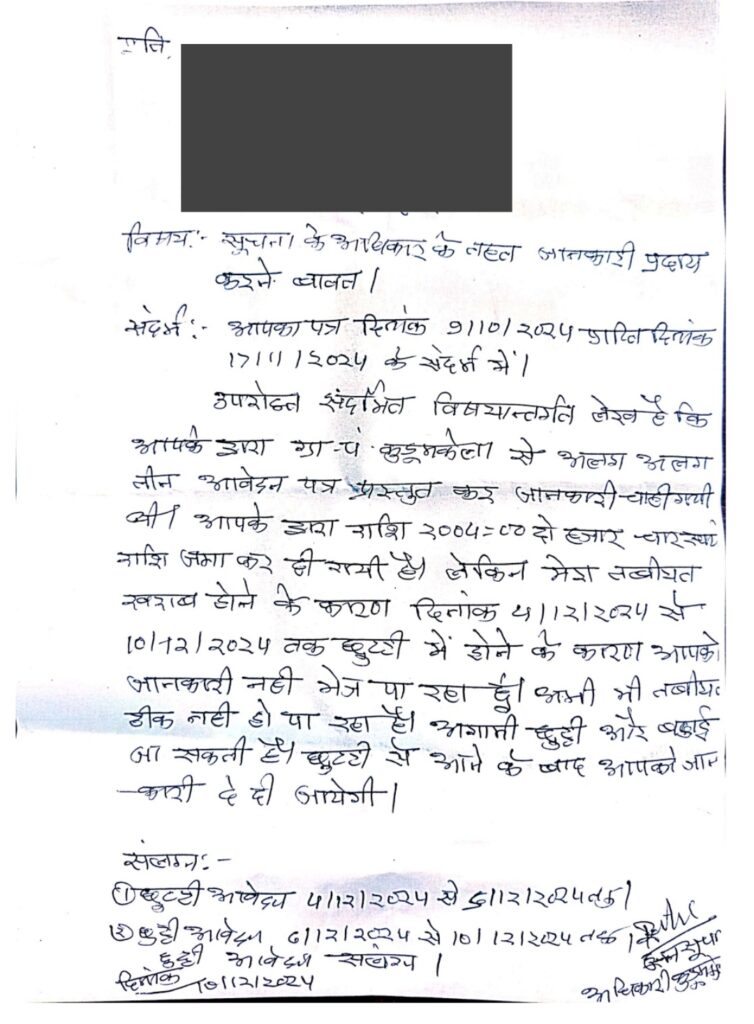 प्रति,
विषय:- सूचना के अधिकार के तहत जानकारी प्रदाय
करने बाबत।
संदर्भ:- आपका पत्र दिनांक 9/10/2024 प्राप्ति दिनांक
17/11/2024 के संदर्भ में।
उपरोक्त संदर्भित विषयान्तर्गत लेख है कि
आपके द्वारा ग्रा-पं कुडूमकेला से अलग अलग
तीन आवेदन पत्र प्रस्तुत कर जानकारी चाही गयी
थी। आपके द्वारा राशि 2004=00 दो हजार चार रूपये
राशि जमा कर दी गयी है। लेकिन मेरा तब्बीयत
खराब होने के कारण दिनांक 4/12/2024 से
10/12/2024 तक छुट्टी में होने के कारण आपको
जानकारी नही भेज पा रहा हूँ। अभी भी तब्बीयत
ठीक नही हो पा रहा है। अगामी छुट्टी और बढाई
जा सकती है। छुट्टी से आने के बाद आपको जान
-कारी दे दी जायेगी।
संलग्न:-
① छुट्टी आवेदन 4/12/2024 से 6/12/2024 तक।
② छुट्टी आवेदन 6/12/2024 से 10/12/2024 तक।
छुट्टी आवेदन संलग्न।
दिनांक 10/12/2024
जन सूचना
अधिकारी